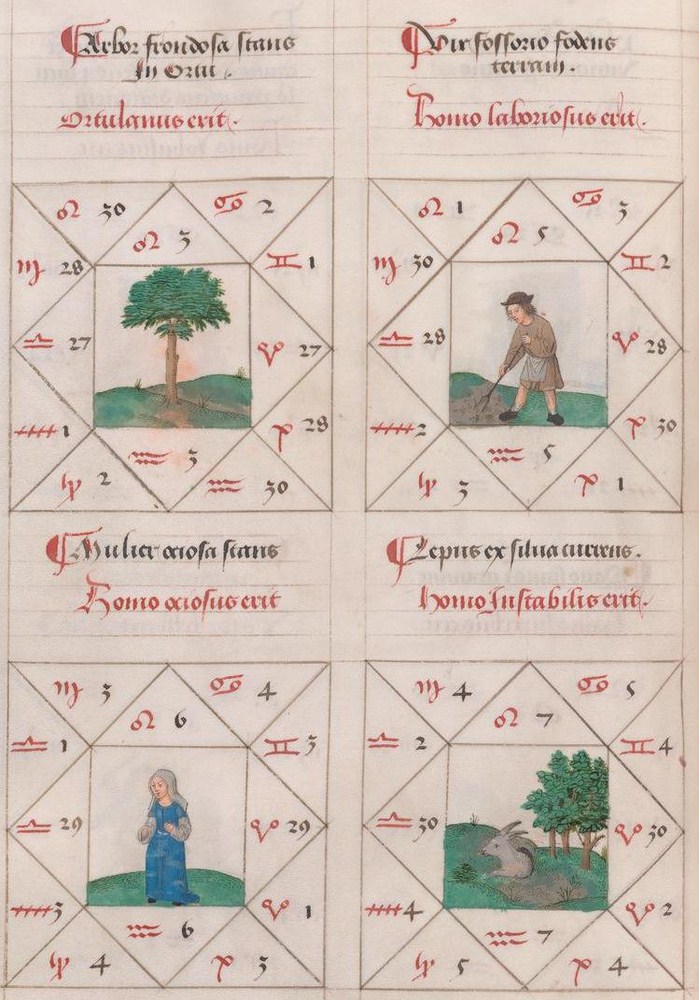 Arbor frondosa stans
In Ortu.
Ortulanus erit.
Vir fossorio fodens
terram.
Homo laboriosus erit.
♌ 30
♋ 2
♌ 3
♍ 28
♊ 1
♎ 27
♈ 27
1
28
♒ 3
2
♒ 30
♌ 1
♋ 3
♌ 5
♍ 30
♊ 2
♎ 28
♈ 28
2
30
♒ 5
3
1
Mulier ociosa stans
Homo ociosus erit
Lepus ex silua currens.
Homo Instabilis erit.
♍ 3
♋ 4
♌ 6
♎ 1
♊ 3
♎ 29
♈ 29
3
♈ 1
♒ 6
4
3
♍ 4
♋ 5
♌ 7
♎ 2
♊ 4
♎ 30
♈ 30
4
♈ 2
♒ 7
5
4